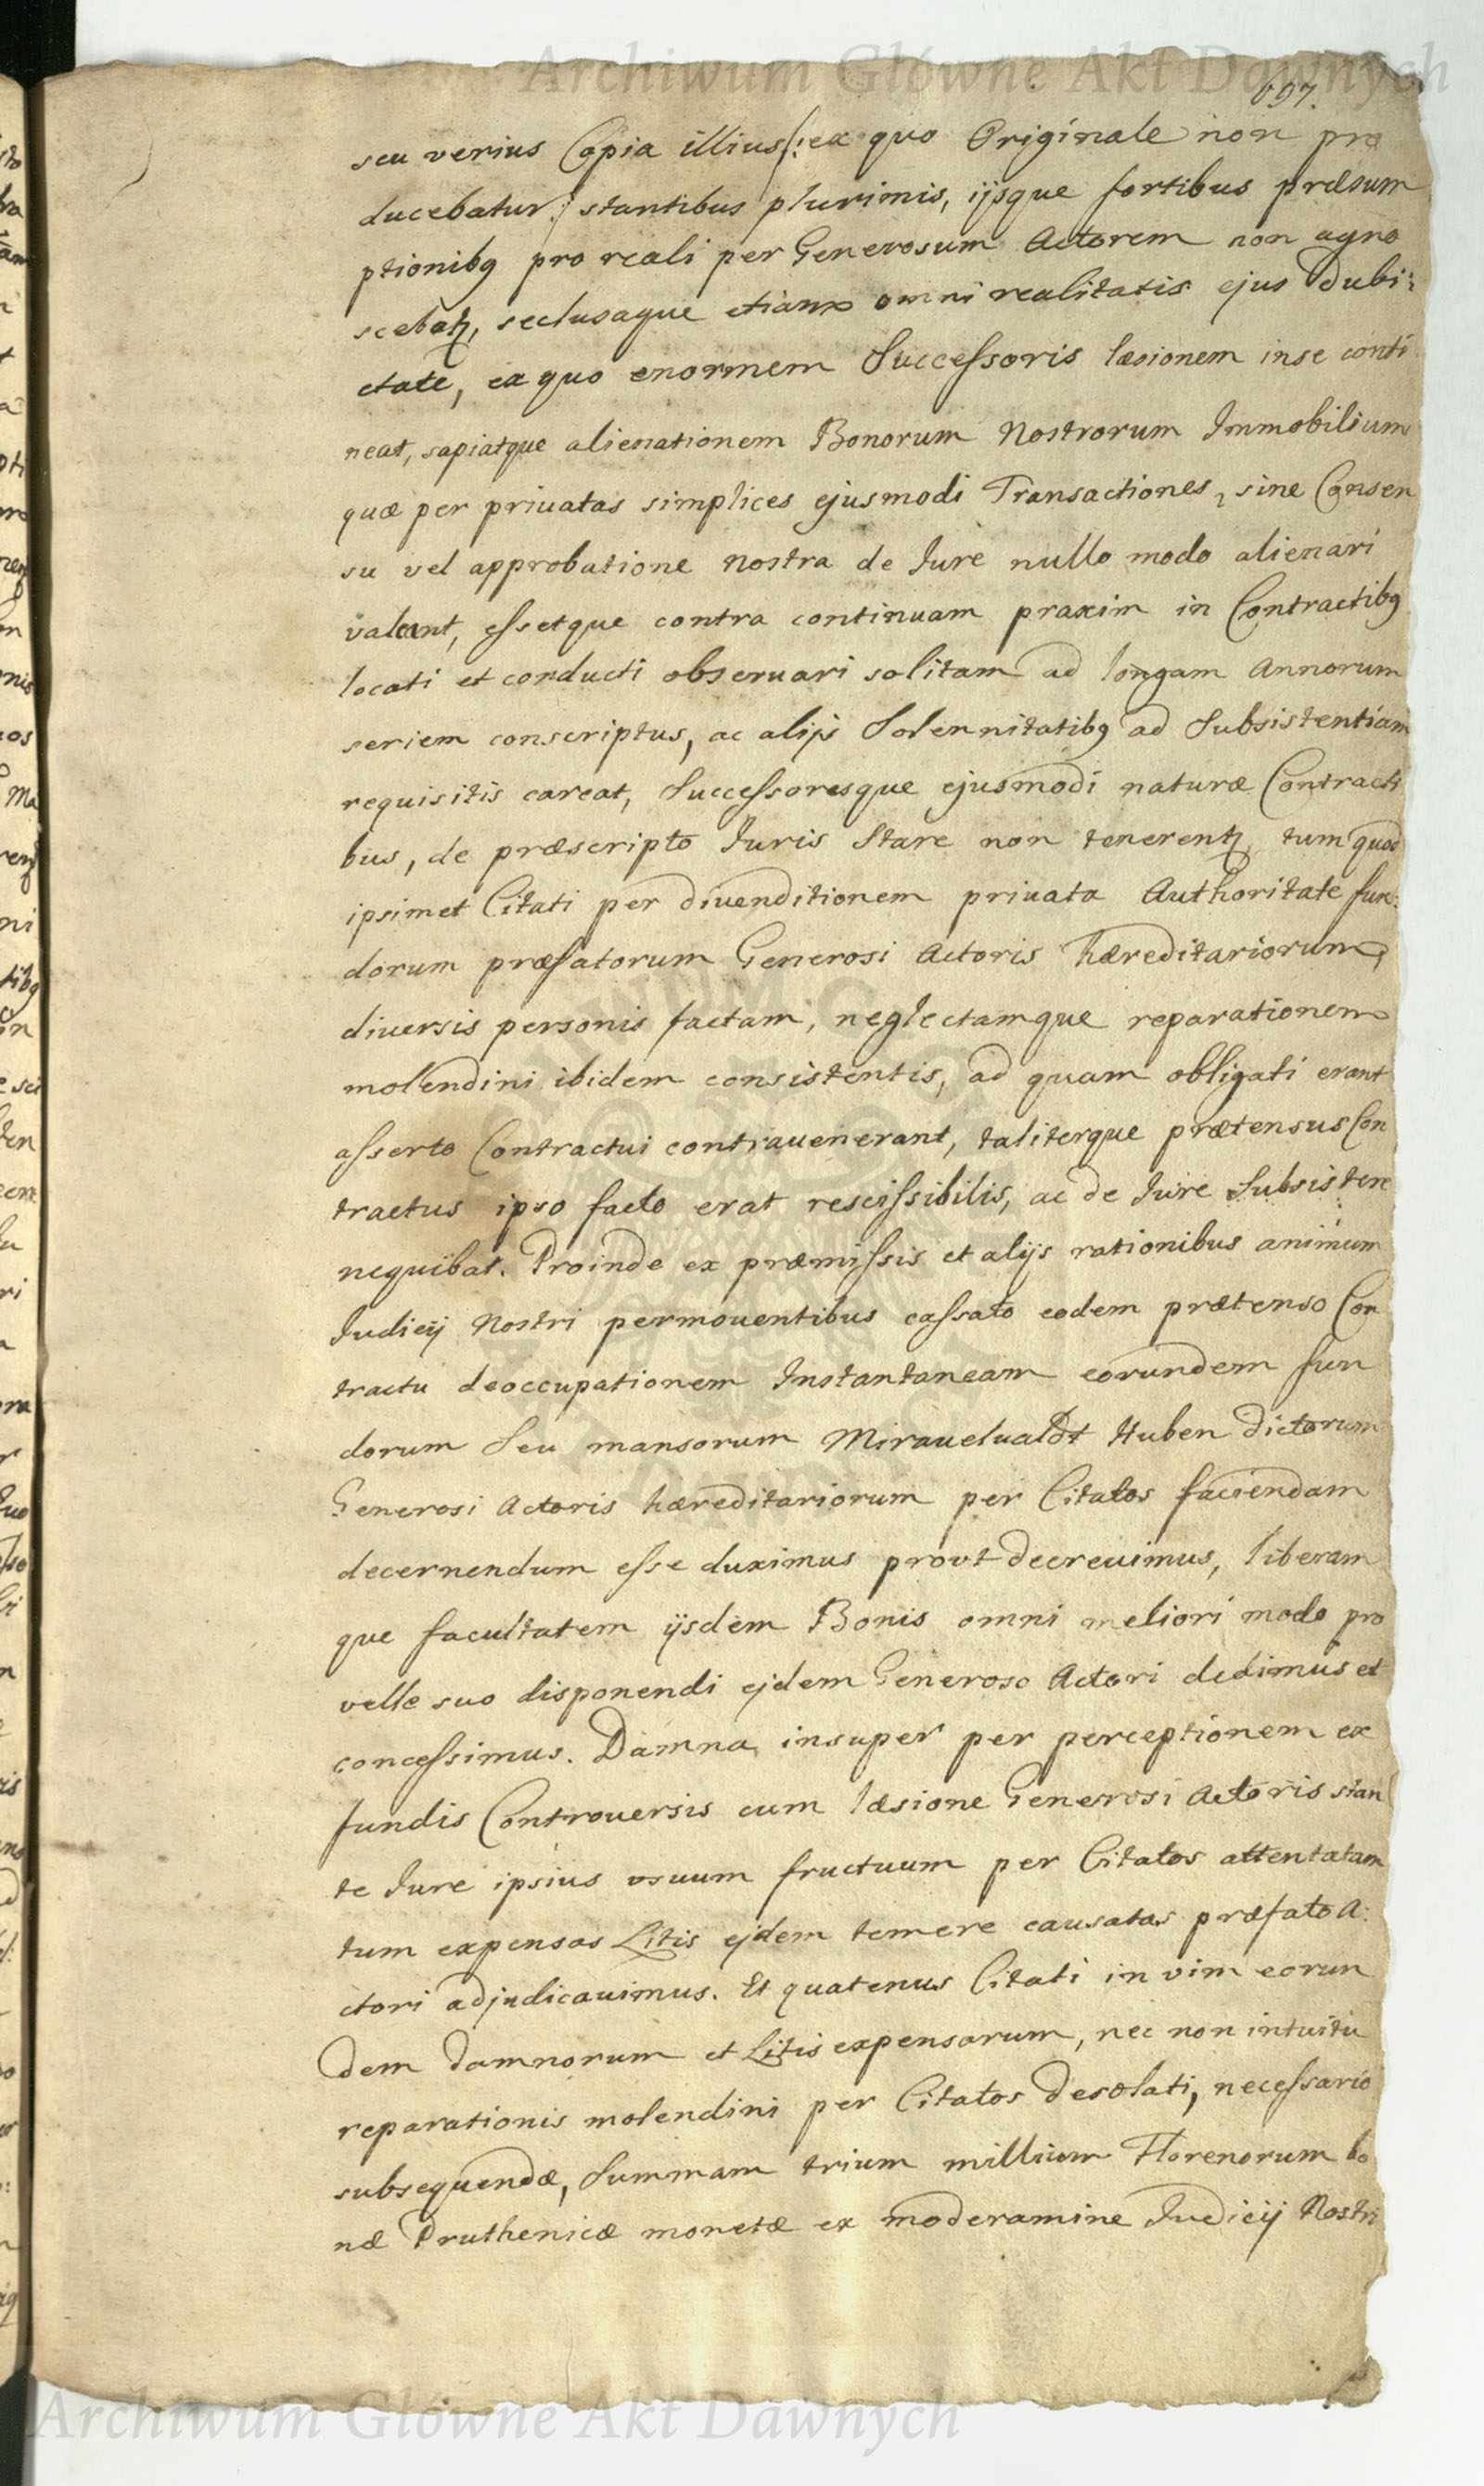 Archiwum Główne Akt Dawnych
697.
seu verius Copia illius /: ex quo Originale non pro
ducebatur :/ stantibus plurimis, ijsque fortibus præsum
ptionibq pro reali per Generosum Actorem non agno
scebatz, seclusaque etiam omni realitatis ejus dubi:
etate, ex quo enormem Successoris læsionem in se conti
neat, sapiatque alienationem Bonorum Nostrorum Immobilium
quæ per priuatas simplices ejusmodi Transactiones, sine Consen
su vel approbatione nostra de Jure nullo modo alienari
valeant, essetque contra continuam praxim in Contractibq
locati et conducti obseruari solitam ad longam Annorum
seriem conscriptus, ac alijs Solennitatibq ad Subsistentiam
requisitis careat, Successoresque ejusmodi naturæ Contracti
bus, de præscripto Juris Stare non tenerentz, tum quod
ipsimet Citati per diuenditionem priuata Authoritate fun:
dorum præfatorum Generosi Actoris hæreditariorum,
diuersis personis factam, neglectamque reparationem
molendini ibidem consistentis, ad quam obligati erant
asserto Contractui contrauenerant, taliterque prætensus Con
tractus ipso facto erat rescissibilis, ac de Jure Subsistere
nequibat. Proinde ex præmissis et alijs rationibus animum
Judicij Nostri permouentibus cassato eodem prætenso Con
tractu deoccupationem Instantaneam eorundem fun
dorum Seu mansorum Mirauelualdt Huben dictorum
Generosi Actoris hæreditariorum per Citatos faciendam
decernendum esse duximus prout decreuimus, liberam
que facultatem ijsdem Bonis omni meliori modo pro
velle suo disponendi ejdem Generoso Actori dedimus et
concessimus. Damna insuper per perceptionem ex
fundis Controuersis cum læsione Generosi Actoris stan
te Jure ipsius usuum fructuum per Citatos attentatam
tum expensas Litis ejdem temere causatas præfato A:
ctori adjudicauimus. Et quatenus Citati in vim eorun
dem damnorum et Litis expensarum, nec non intuitu
reparationis molendini per Citatos desolati, necessario
subsequendæ, Summam trium millium Florenorum bo
næ Pruthenicæ monetæ ex moderamine Judicij Nostri
Archiwum Główne Akt Dawnych